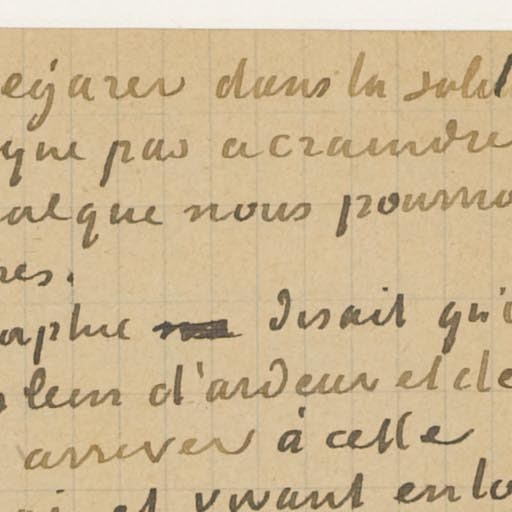 egarer dans la solit
que pas a craindre
que nous pourro
res.
disait qu'i
leur d'ardeur et de
arriver à celle
et vivant en